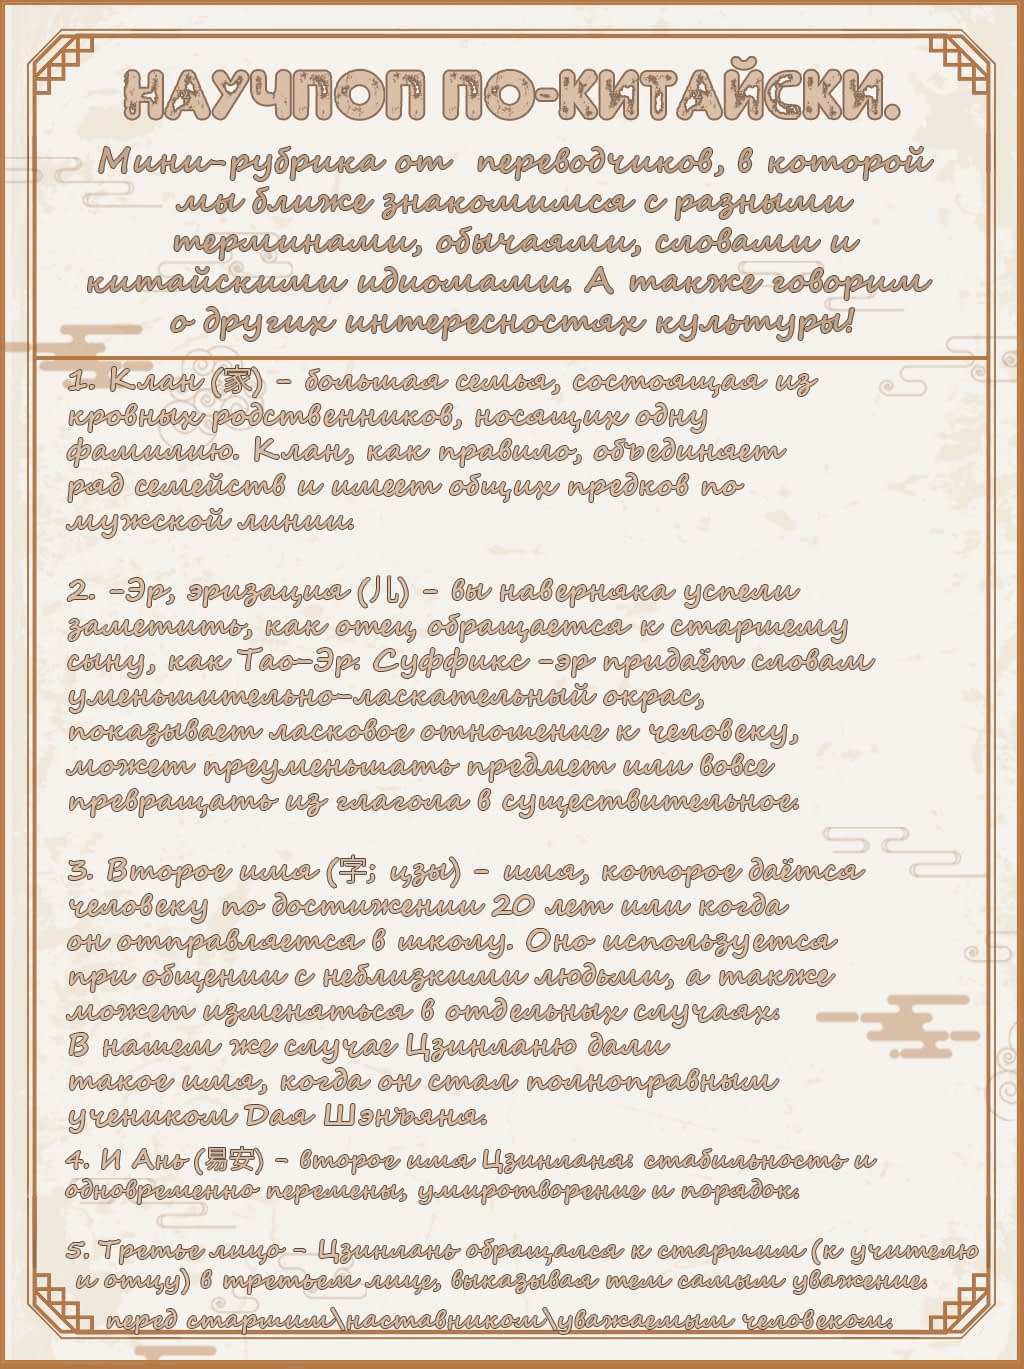 НАУЧПОП ПО-КИТАЙСКИ.
Мини-рубрика от переводчиков, в которой
мы ближе знакомимся с разными
терминами, обычаями, словами и
китайскими идиомами. А также говорим
о других интересностях культуры!
1. Клан (家) - большая семья, состоящая из
кровных родственников, носящих одну
фамилию. Клан, как правило, объединяет
ряд семейств и имеет общих предков по
мужской линии.
2. -Эр, эризация (儿) - вы наверняка успели
заметить, как отец обращается к старшему
сыну, как Тао-Эр. Суффикс -эр придаёт словам
уменьшительно-ласкательный окрас,
показывает ласковое отношение к человеку,
может преуменьшать предмет или вовсе
превращать из глагола в существительное.
3. Второе имя (字; цзы) - имя, которое даётся
человеку по достижении 20 лет или когда
он отправляется в школу. Оно используется
при общении с неблизкими людьми, а также
может изменяться в отдельных случаях.
В нашем же случае Цзинланю дали
такое имя, когда он стал полноправным
учеником Дая Шэнъяня.
4. И Ань (易安) - второе имя Цзинланя: стабильность и
одновременно перемены, умиротворение и порядок.
5. Третье лицо - Цзинлань обращался к старшим (к учителю
и отцу) в третьем лице, выказывая тем самым уважение.
перед старшим\наставником\уважаемым человеком.